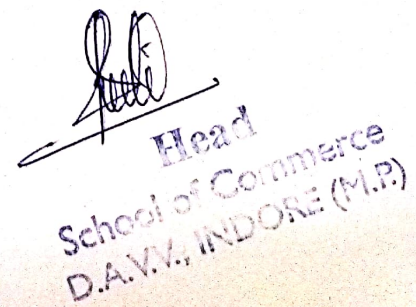 Head
School of Commerce
D.A.V.V., INDORE (M.P.)